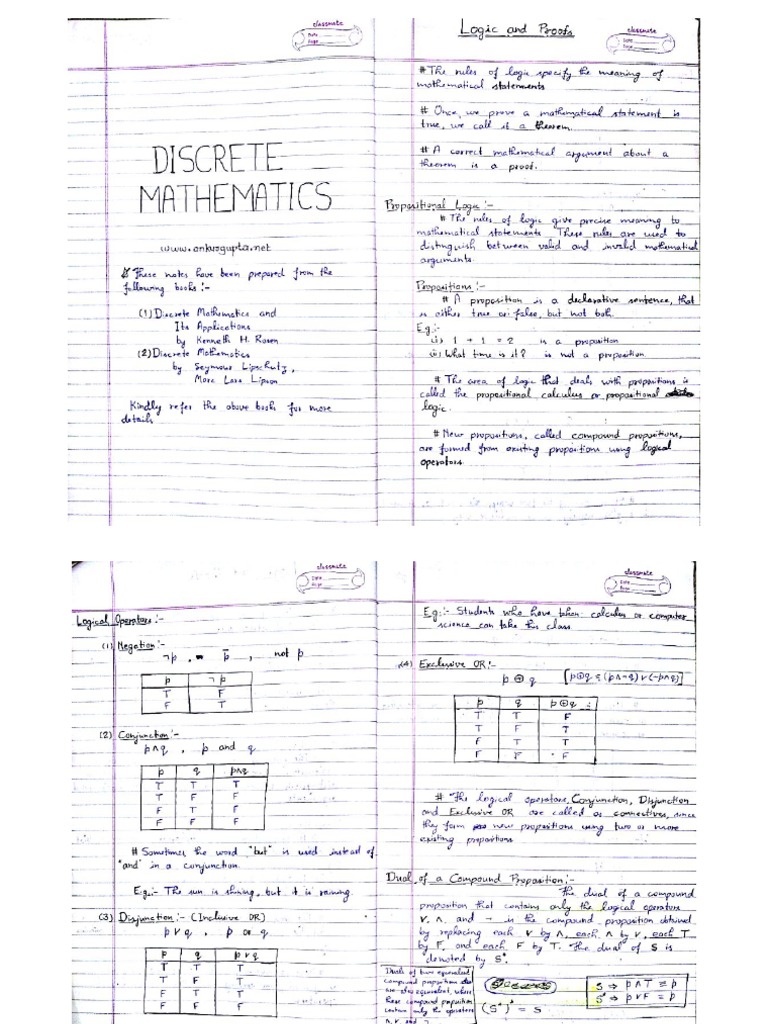 classmate
Date
Page
DISCRETE
MATHEMATICS
www.onkusgupta.net
These notes have been prepared from the
following books :-
(1) Discrete Mathematics and
Its Applications
by Kenneth H. Rosen
(2) Discrete Mathematics
by Seymour Lipschutz,
Marc Lars Lipson
Kindly refer the above books for more
details
Logic and Proofs
classmate
Date
Page
# The rules of logic specify the meaning of
mathematical statements
# Once we prove a mathematical statement is
true, we call it a theorem.
# A correct mathematical argument about a
theorem is a proof.
Propositional Logic :-
# The rules of logic give precise meaning to
mathematical statements. These rules are used to
distinguish between valid and invalid mathematical
arguments.
Propositions :-
# A proposition is a declarative sentence, that
is either true or false, but not both.
Eg:-
(i) 1 + 1 = 2 is a proposition
(ii) What time is it? is not a proposition
# The area of logic that deals with propositions is
called the propositional calculus or propositional
logic.
# New propositions, called compound propositions,
are formed from existing propositions using logical
operators.
classmate
Date
Page
Logical Operators :-
(1) Negation :-
¬p , p̄ , not p
p ¬p
T F
F T
(2) Conjunction :-
p∧q , p and q
p q p∧q
T T T
T F F
F T F
F F F
# Sometimes the word "but" is used instead of
"and" in a conjunction.
Eg:- The sun is shining, but it is raining.
(3) Disjunction :- (Inclusive OR)
p∨q , p or q
p q p∨q
T T T
T F T
F T T
F F F
classmate
Date
Page
Eg:- Students who have taken calculus or computer
science can take this class
(4) Exclusive OR :-
p⊕q [p⊕q (p∧¬q)∨(¬p∧q)]
p q p⊕q
T T F
T F T
F T T
F F F
# The logical operators, Conjunction, Disjunction
and Exclusive OR are called as connectives, since
they form new propositions using two or more
existing propositions
Dual of a Compound Proposition :-
The dual of a compound
proposition that contains only the logical operators
∨, ∧, and ¬ is the compound proposition obtained
by replacing each ∨ by ∧, each ∧ by ∨, each T
by F, and each F by T. The dual of S is
denoted by S*.
Duals of two equivalent
compound propositions
are also equivalent, where
these compound proposition
contain only the operators
∧, ∨ and ¬
(S*)* = S
S ⇒ p∧T ≡ p
S* ⇒ p∨F ≡ p